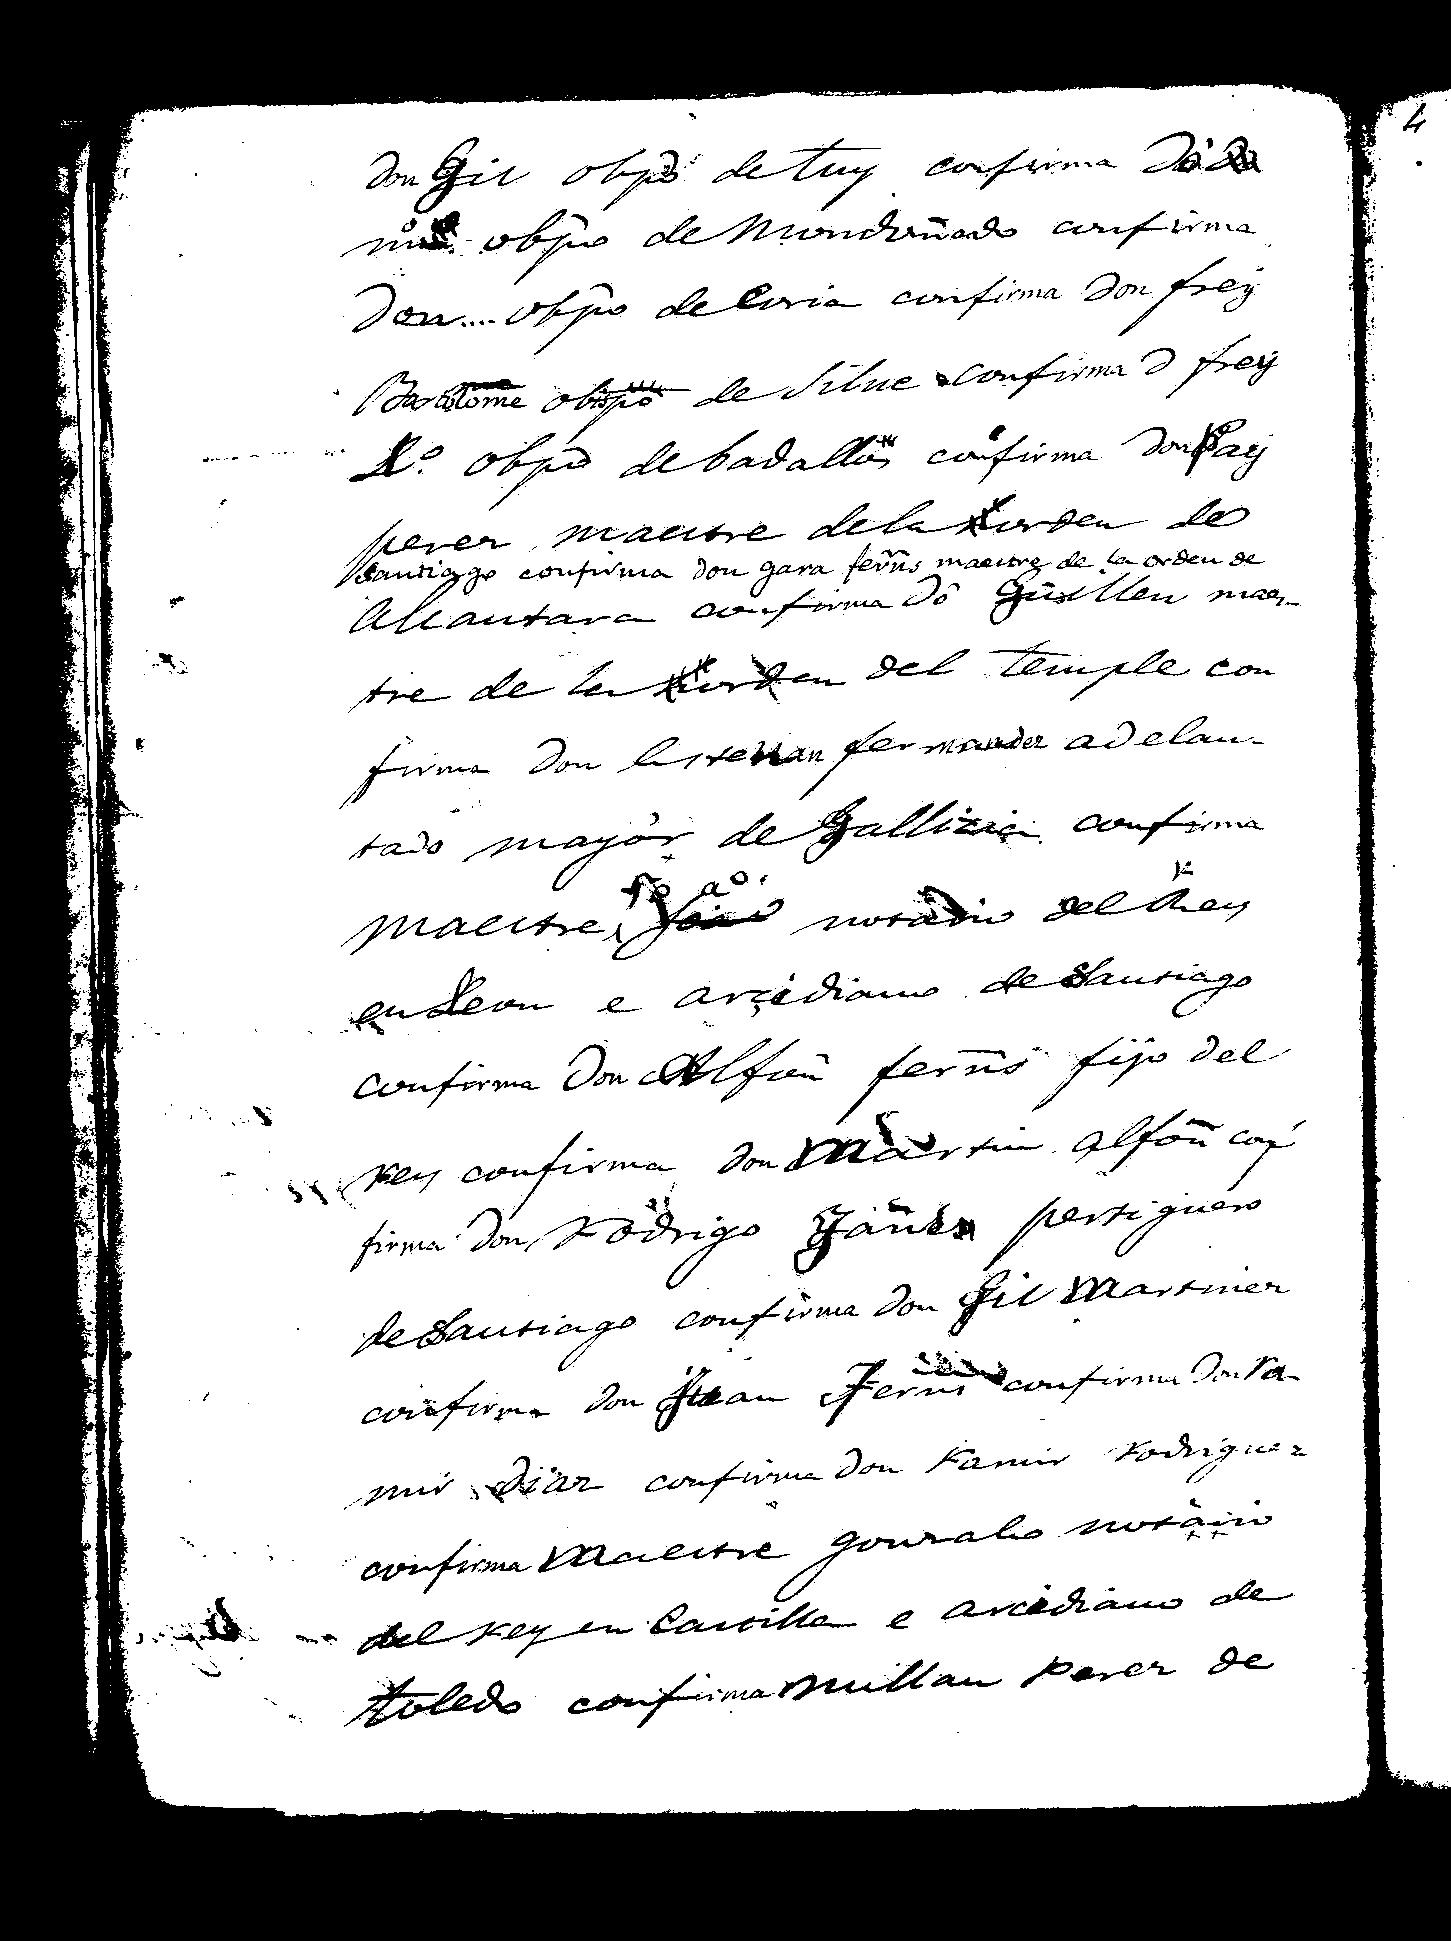 4
don Gil obpõ de tuy confirma Dõ
nuº obpo de Mondoñado confirma
Don.... obpo de Coria confirma Don frey
Bartolome obispo de Silue confirma D frey
Lº obpõ de badalloz confirma Don Pay
perez maestre de la orden de
santiago confirma don gara ferñs maestre de la orden de
Alcantara confirma Dõ Guillen maes-
tre de la orden del Temple con
firma Don Esteuan fernandez adelan-
tado mayor de Gallizia confirma
maestre notario del Rey
en Leon e arcediano de Santiago
confirma Don Alfoñ ferñs fijo del
rey confirma don Martin alfoñ con
firma don Rodrigo Yañez pertiguero
de Santiago confirma don Gil Martinez
confirma don Juan Ferñs confirma Don Ra-
mir Diaz confirma Don Ramir Rodriguez
confirma Maestre gonzalo notario
del Rey en Castilla e arcediano de
toledo confirma Millan Perez de